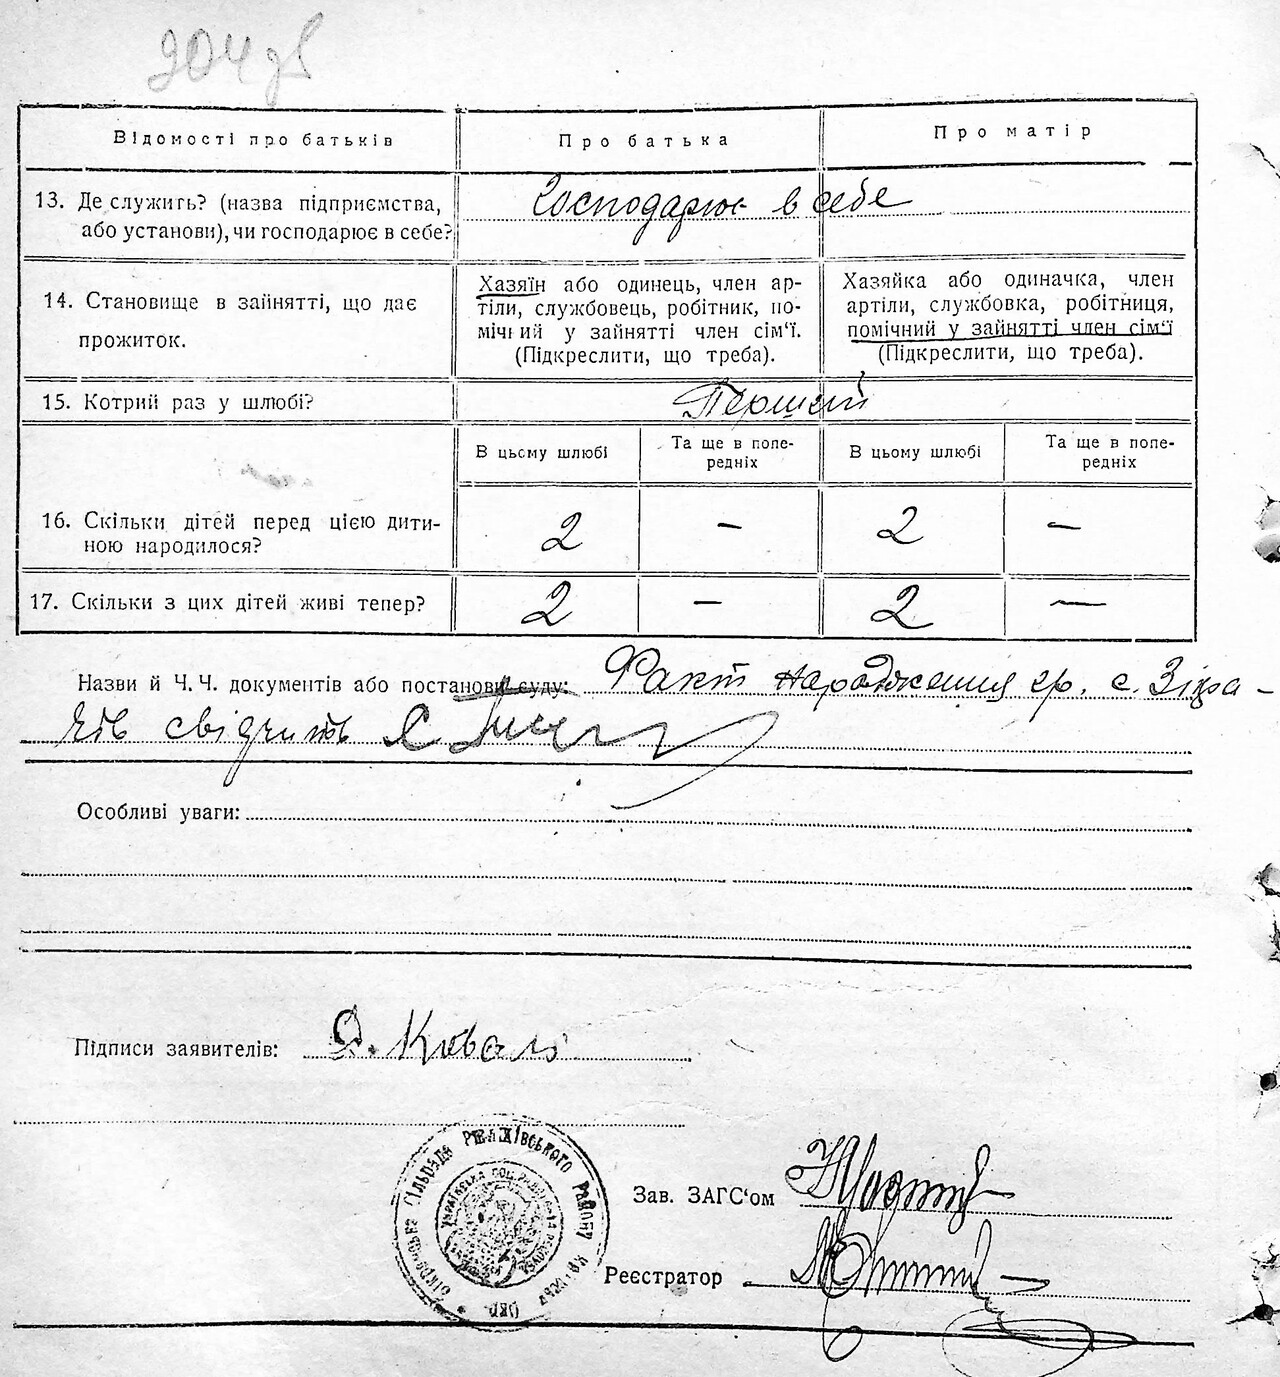 204 зв
Відомості про батьків
Про батька
Про матір
13. Де служить? (назва підприємства,
або установи), чи господарює в себе?
Господарює в себе
14. Становище в зайнятті, що дає
прожиток.
Хазяїн або одинець, член ар-
тіли, службовець, робітник, по-
мічний у зайнятті член сім'ї.
(Підкреслити, що треба).
Хазяйка або одиначка, член
артіли, службовка, робітниця,
помічний у зайнятті член сім'ї
(Підкреслити, що треба).
15. Котрий раз у шлюбі?
Перший
В цьому шлюбі
Та ще в попе-
редніх
В цьому шлюбі
Та ще в попе-
редніх
16. Скільки дітей перед цією дити-
ною народилося?
2 – 2 –
17. Скільки з цих дітей живі тепер?
2 – 2 –
Назви й Ч. Ч. документів або постанови суду: Факт народження гр. с.
свідчить
Особливі уваги:
Підписи заявителів: Коваль
Сільрада району
Зав. ЗАГС'ом
Реєстратор